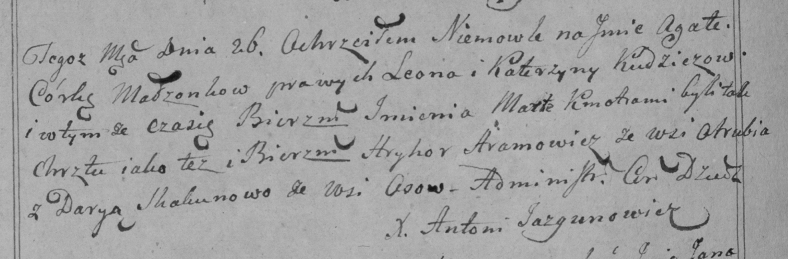 Tegoż Mca Dnia 26. Ochrzciłem Niemowle na Jmie Agatę.
Córkę Małzonkow prawych Leona i Katerzyny Kudziczow.
i wtym że czasię Bierzm Imienia Marte Kmotrami byli tak
chrztu iako też i Bierzm Hryhor Aramowicz ze wsi Otrubia
z Daryą Skakunowo ze wsi Osow - Administr. Cer Dziedz
X. Antoni Jazgunowicz